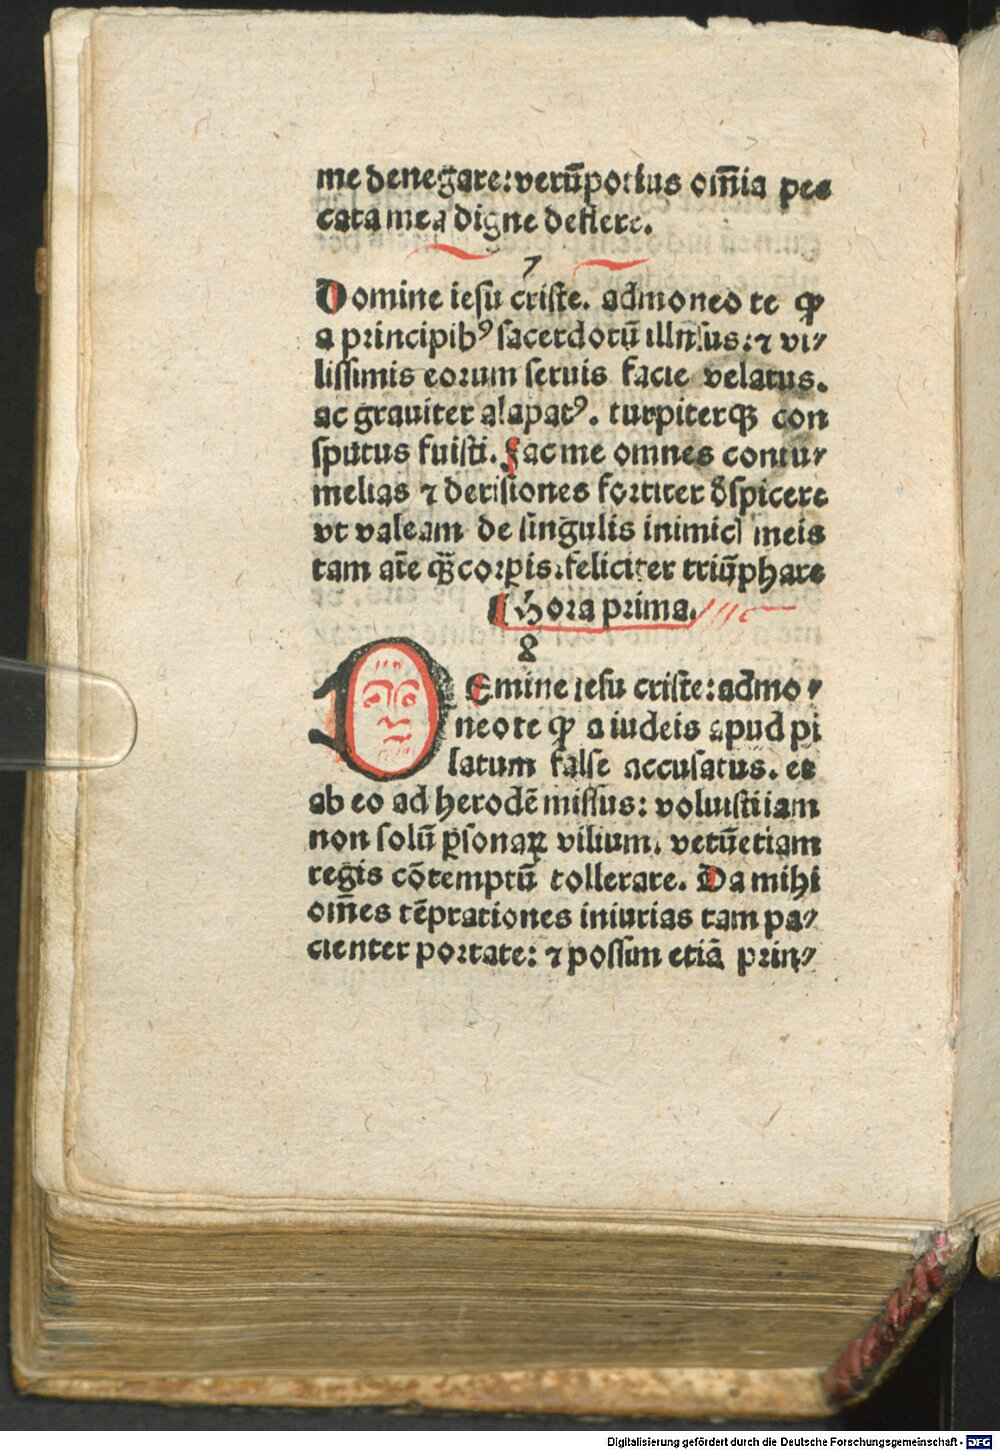 me denegare: verū potius om̄ia pec
cata mea digne deflere.
7
Domine iesu criste. admoneo te qꝫ
a principibꝰ sacerdotū illusus: ⁊ vi⸗
lissimis eorum seruis facie velatus.
ac grauiter alapatꝰ. turpiterqꝫ con
sputus fuisti. Fac me omnes contu⸗
melias ⁊ derisiones fortiter d̄spicere
vt valeam de singulis inimicꝭ meis
tam aīe qꝫ̄ corꝑis: feliciter triūphare
¶ Hora prima.
8
DEmine iesu criste: admo⸗
neo te qꝫ a iudeis apud pi
latum false accusatus. et
ab eo ad herodē missus: voluisti iam
non solū ꝑsonaꝝ vilium. verū etiam
regis cōtemptū tollerare. Da mihi
om̄es tēptationes iniurias tam pa⸗
cienter portare: ⁊ possim etiā prin⸗
Digitalisierung gefördert durch die Deutsche Forschungsgemeinschaft - DFG